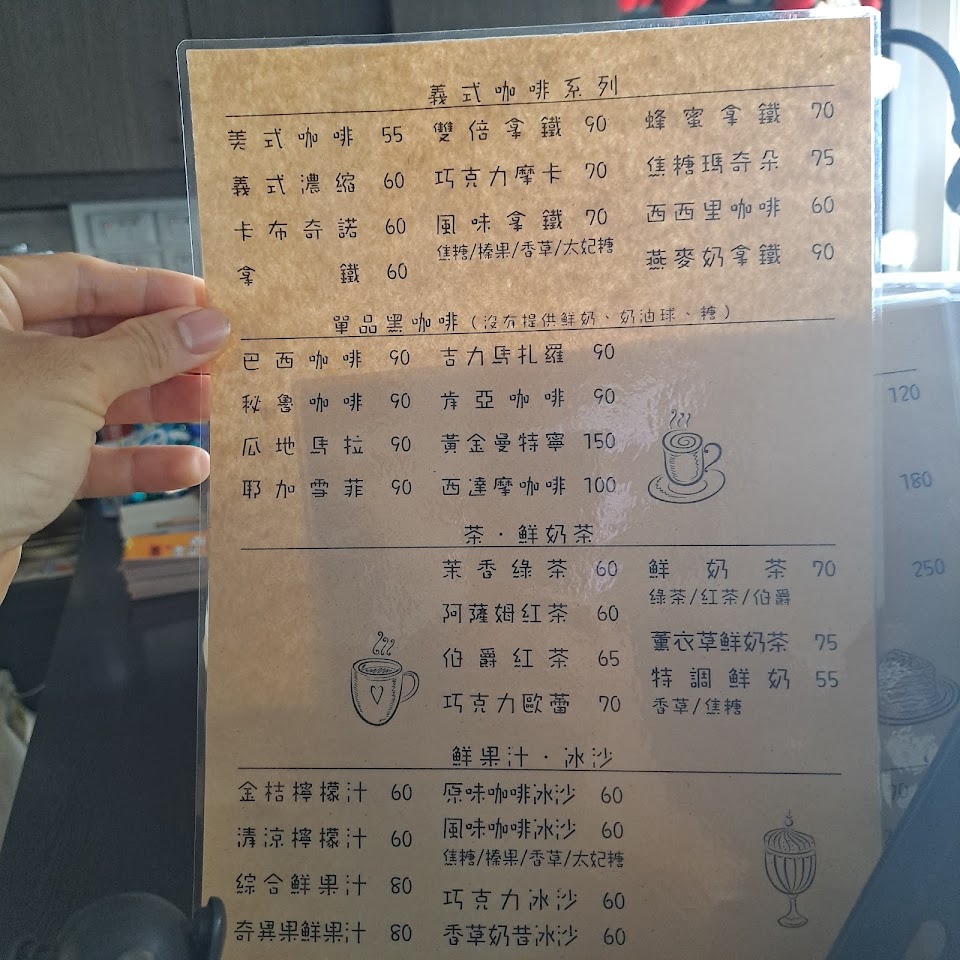 義式咖啡系列
美式咖啡 55
義式濃縮 60
卡布奇諾 60
拿鐵 60
雙倍拿鐵 90
巧克力摩卡 70
風味拿鐵 70
焦糖/榛果/香草/太妃糖
蜂蜜拿鐵 70
焦糖瑪奇朵 75
西西里咖啡 60
燕麥奶拿鐵 90
單品黑咖啡(沒有提供鮮奶、奶油球、糖)
巴西咖啡 90
秘魯咖啡 90
瓜地馬拉 90
耶加雪菲 90
吉力馬扎羅 90
肯亞咖啡 90
黃金曼特寧 150
西達摩咖啡 100
茶·鮮奶茶
茉香綠茶 60
阿薩姆紅茶 60
伯爵紅茶 65
巧克力歐蕾 70
鮮奶茶 70
綠茶/紅茶/伯爵
薰衣草鮮奶茶 75
特調鮮奶 55
香草/焦糖
鮮果汁·冰沙
金桔檸檬汁 60
清涼檸檬汁 60
綜合鮮果汁 80
奇異果鮮果汁 80
原味咖啡冰沙 60
風味咖啡冰沙 60
焦糖/榛果/香草/太妃糖
巧克力冰沙 60
香草奶昔冰沙 60
120
180
250